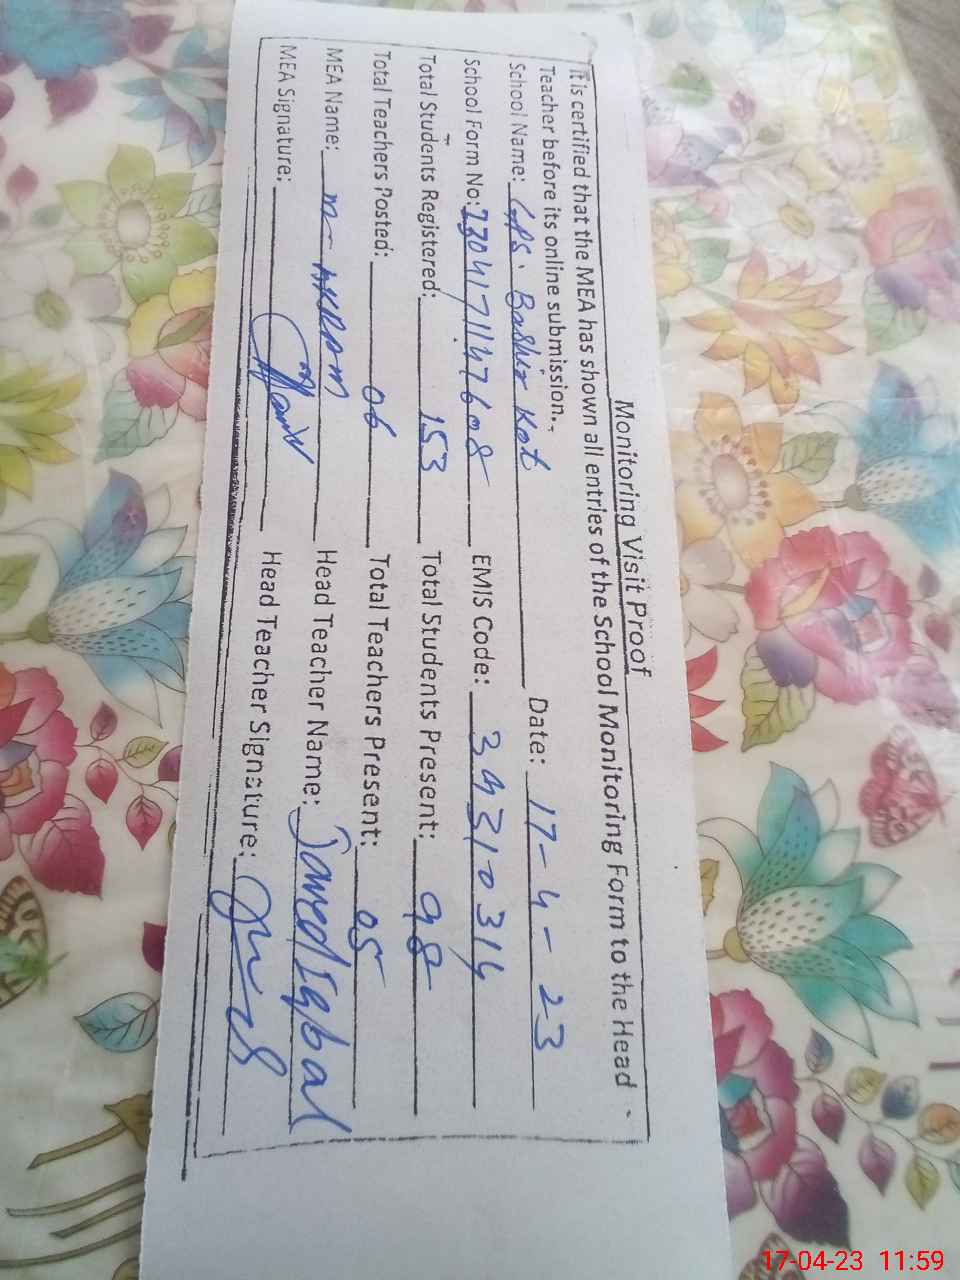 Monitoring Visit Proof
It is certified that the MEA has shown all entries of the School Monitoring Form to the Head
Teacher before its online submission.
School Name: GPS. Bashir Kot Date: 17-4-23
School Form No: EMIS Code: 34310314
Total Students Registered: 153 Total Students Present: 98
Total Teachers Posted: 06 Total Teachers Present: 05
MEA Name: M-AKRAM Head Teacher Name: Javed Iqbal
MEA Signature: Head Teacher Signature:
17-04-23 11:59